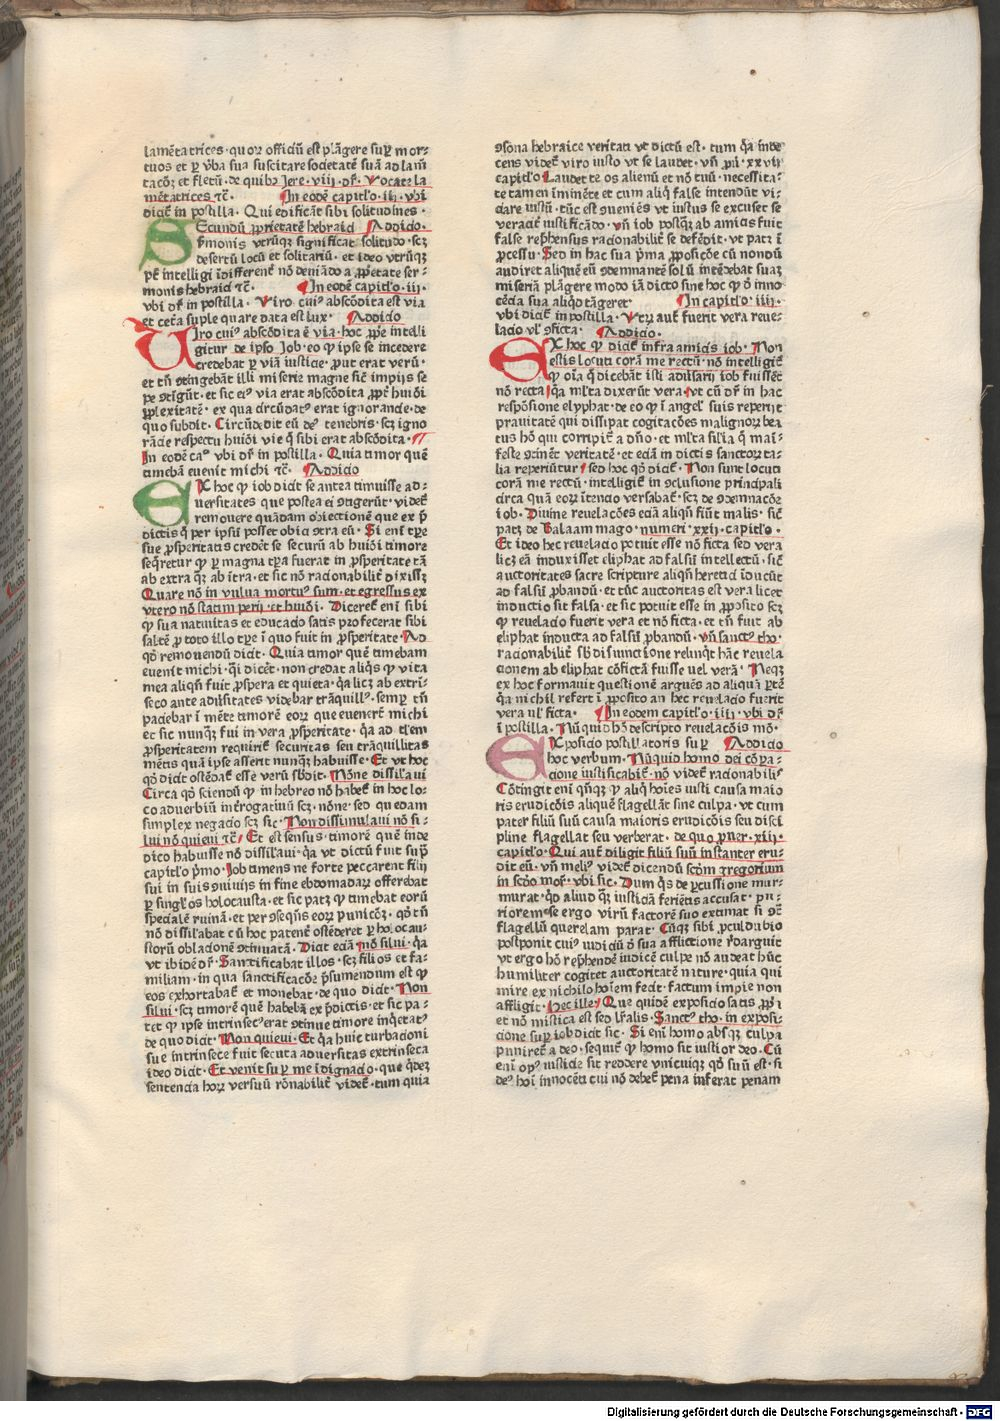 lamẽtatrices · quoꝝ officiũ est plãgere suꝑ mor-
tuos et ꝑ v̾ba sua suscitare societatẽ suã ad lam̃
tacõꝫ et fletũ · de quibꝫ Jere · viij · dr̃ · Vocate la
mẽtatrices tc̃ · In eodẽ capitl̾o · iij · vbi
dicit̃ in postilla · Qui edificãt sibi solitudines ·
Secundũ ꝓprietatẽ hebraici Addicio ·
s̾monis vtrũqꝫ significat solitudo · scꝫ
desertũ locũ et solitariũ · et ideo vtrũqꝫ
pt̃ intelligi ĩdifferent̾ nõ deuiãdo a ꝓprietate ser-
monis hebraici tc̃ · In eodẽ capitl̾o · iij ·
vbi dr̃ in postilla · Viro cuiꝰ abscõdita est via
et cet̾a suple quare data est lux · Addicio
Viro cuiꝰ abscõdita ẽ via · hoc ꝓprie inteli
gitur de ipso Job · eo ꝙ ipse se incedere
credebat ꝑ viã iusticie · ꝓut erat verũ ·
et tñ ↄtingebãt illi miserie magne sicut impijs se
pe ↄtigũt · et sic eiꝰ via erat abscõdita ꝓpt̾ huiꝰi
ꝑplexitatẽ · ex qua circũdatꝰ erat ignorancie · de
quo subdit · Circũdedit eũ deꝰ tenebris · scꝫ igno
rãcie respectu huiꝰi vie q̃ sibi erat abscõdita ·
In eodẽ caº vbi dr̃ in postilla · Quia timor quẽ
timebã euenit michi tc̃ · Addicio
Ex hoc ꝙ iob dicit se antea timuisse ad-
uersitates que postea ei ↄtigerũt · videt̃
remouere quãdam obiectionẽ que ex p̃
dictis q̃ per ipsũ posset obici ↄtra eũ · Si eni t̾pe
sue ꝓsperitatis credet se securũ ab huiꝰi timore
seq̃retur ꝙ ꝑ magna t̾pa fuerat in ꝓsperitate tã
ab extra qꝫ ab ĩtra · et sic nõ racionabilit̾ dixissꝫ
Quare nõ in vulua mortuꝰ sum · et egressus ex
vtero nõ statim perij · et huiꝰi · Diceret̃ eni sibi
ꝙ sua natiuitas et educacio satis ꝓfecerat sibi
saltẽ ꝓ toto illo t̾pe ĩ quo fuit in ꝓsperitate · Ad
qõ remouendũ dicit · Quia timor quẽ timebam
euenit michi · q̃i dicẽt · non credat aliqs ꝙ vita
mea aliqñ fuit ꝓspera et quieta · q̃a licꝫ ab extri-
seco ante aduersitates videbar trãquillꝰ · semꝑ tñ
paciebar ĩ mẽte timorẽ eorꝫ que euenerũt michi
et sic nunqꝫ fui in vera ꝓsperitate · q̃a ad t̾lem
ꝓsperitatem requirit̃ securitas seu trãquillitas
mẽtis quã ipse asserit nunqꝫ habuisse · Et vt hoc
qõ dicit ostẽdat̃ esse verũ sb̾dit · Nõne dissil̾aui
Circa qõ sciendũ ꝙ in hebreo nõ habet̃ in hoc lo-
co aduerbiũ int̾rogatiuũ scꝫ · nõne · sed quedam
simplex negacio scꝫ sic · Non dissimulaui nõ si-
lui nõ quieui tc̃ · Et est sensus · timorẽ quẽ inde
dico habuisse nõ dissil̾aui · q̃a vt dictũ fuit sup̾
capitl̾o p̾mo · Job timens ne forte peccarent filij
sui in suis ↄuiuijs in fine ebdomadaꝝ offerebat
ꝑ singl̾os holocausta · et sic patꝫ ꝙ timebat eorũ
specialẽ ruinã · et per ↄseq̃ns eoꝝ punicõꝫ · qõ tñ
nõ dissil̾abat cũ hoc patent̾ ostẽderet ꝑ holocau-
storũ oblacionẽ ↄtinuatã · Dicit eciã · nõ silui · q̃a
vt ibidẽ dr̃ · Sanctificabat illos · scꝫ filios et fa-
miliam · in qua sanctificacõꝫ p̃sumendum est ꝙ
eos exhortabat̃ et monebat · de quo dicit · Non
silui · scꝫ timorẽ quẽ habebã ex p̃dictis · et sic pa-
tet ꝙ ipse intrinsecꝰ erat ↄtinue timore inq̃etatꝰ
de quo dicit · Non quieui · Et q̃a huic turbacioni
sue intrinsece fuit secuta aduersitas extrinseca
ideo dicit · Et venit suꝑ me ĩdignacio · que q̃dem
sentencia horꝫ versuũ rõnabilit̾ videt̃ · tum quia
ↄsona hebraice veritati vt dictũ est · tum q̃a ĩnde
cens videt̃ viro iusto vt se laudet · vñ ꝓũ · xxvij
capitl̾o Laudet te os alienũ et nõ tuũ · necessita-
te tamen ĩminẽte et cum aliq̃ false intendũt vi-
ciare iustũ · tũc est ↄueniẽs vt iustus se excuset se
veracit̾ iustificãdo · vñ iob postqꝫ ab amicis fuit
false rep̾hensus racionabilit̾ se defẽdit · vt patꝫ ĩ
ꝓcessu · Sed in hac sua p̾ma ꝓposicõe cũ nondũ
audiret aliquẽ eũ ↄdemnantẽ solũ intẽdebat suaꝫ
miseriã plãgere modo iã dicto sine hoc ꝙ d̾ inno
cẽcia sua aliqd tãgeret · In capitl̾o · iiij ·
vbi dicit̃ in postilla · Vtrꝫ aut̃ fuerit vera reue-
lacio vl̾ ↄficta · Addicio ·
Ex hoc ꝙ dicit̃ infra amicis iob · Non
estis locuti corã me rectũ · nõ intelligit̃
ꝙ oĩa q̃ dicebãt isti aduersarij iob fuissẽt
nõ recta · q̃a ml̾ta dixerũt vera · vt cũ dr̃ in hac
respõsione elyphat · de eo ꝙ ĩ angel̾ suis reperijt
prauitatẽ qui dissipat cogitacões malignorꝫ bea
tus hõ qui corripit̃ a dño · et ml̾ta sil̾ia q̃ mai̾-
feste ↄtinẽt veritatẽ · et eciã in dictis sanctorꝫ ta-
lia reperiũtur · sed hoc qõ dicit̃ · Non sunt locuti
corã me rectũ · intelligit̃ in ↄclusione principali
circa quã eorꝫ ĩtencio versabat̃ · scꝫ de ↄdemnacõe
iob · Diuine reuelacões eciã aliqñ fiũt malis · sic̃
patꝫ de Balaam mago · numeri · xxij · capitl̾o ·
Et ideo hec reuelacio potuit esse nõ ficta sed vera
licꝫ eã induxisset eliphat ad falsũ intellectũ · sic̃
auctoritates sacre scripture aliqñ heretici ĩducũt
ad falsũ ꝓbandũ · et tũc auctoritas est vera licet
inductio sit falsa · et sic potuit esse in ꝓposito scꝫ
ꝙ reuelacio fuerit vera et nõ ficta · et tñ fuit ab
eliphat inducta ad falsũ ꝓbandũ · vñ sanctꝰ tho ·
racionabilit̾ sb̾ disiunctione relinq̃t hãc reuela
cionem ab eliphat cõfictã fuisse uel verã · Neqꝫ
ex hoc formauit questionẽ arguẽs ad aliquã ꝑtẽ
q̃a nichil refert ĩ ꝓposito an hec reuelacio fuerit
vera ul̾ ficta · In eodem capitl̾o · iiij · vbi dr̃
ĩ postilla · Nũquid hõ descripto reuelacõis mõ ·
Exposicio postillatoris suꝑ Addicio
hoc verbum · Nũquid homo dei cõꝑa-
cione iustificabit̃ · nõ videt̃ racionabilis
Cõtingit eni qñqꝫ ꝙ aliq̃ hoĩes iusti causa maio
ris erudicõis aliquẽ flagellãt sine culpa · vt cum
pater filiũ suũ causa maioris erudicõis seu disci
pline flagellat seu verberat · de quo ꝓuer · xiij ·
capitl̾o · Qui aut̃ diligit filiũ suũ instanter eru-
dit eũ · vñ meliꝰ videt̃ dicendũ scd̾m gregorium
in scd̾o mor̃ · vbi sic · Dum q̃s de ꝑcussione mur-
murat · qd aliud qꝫ iusticiã feriẽtis accusat · pu-
riorem se ergo virũ factore suo extimat si ↄt̾
flagellũ querelam parat · Cũqꝫ sibi ꝓculdubio
postponit cuiꝰ iudiciũ d̾ sua afflictione rd̾arguit
vt ergo hõ rep̾hendẽ iudicẽ culpe nõ audeat huc
humiliter cogitet auctoritatẽ nature · quia qui
mire ex nichilo hoĩem fecit · factum impie non
affligit · hec ille · Que quidẽ exposicio satis ꝓp̾ĩ
et nõ mistica est sed lr̃alis · Sanctꝰ tho · in exposi-
cione suꝑ iob dicit sic · Si eni homo absqꝫ culpa
puniret̃ a deo · sequit̃ ꝙ homo sit iustior deo · Cũ
eni opꝰ iusticie sit reddere vnicuiqꝫ qõ suũ est · si
deꝰ hoĩ innocẽti cui nõ debet̃ pena inferat penam
Digitalisierung gefördert durch die Deutsche Forschungsgemeinschaft - DFG